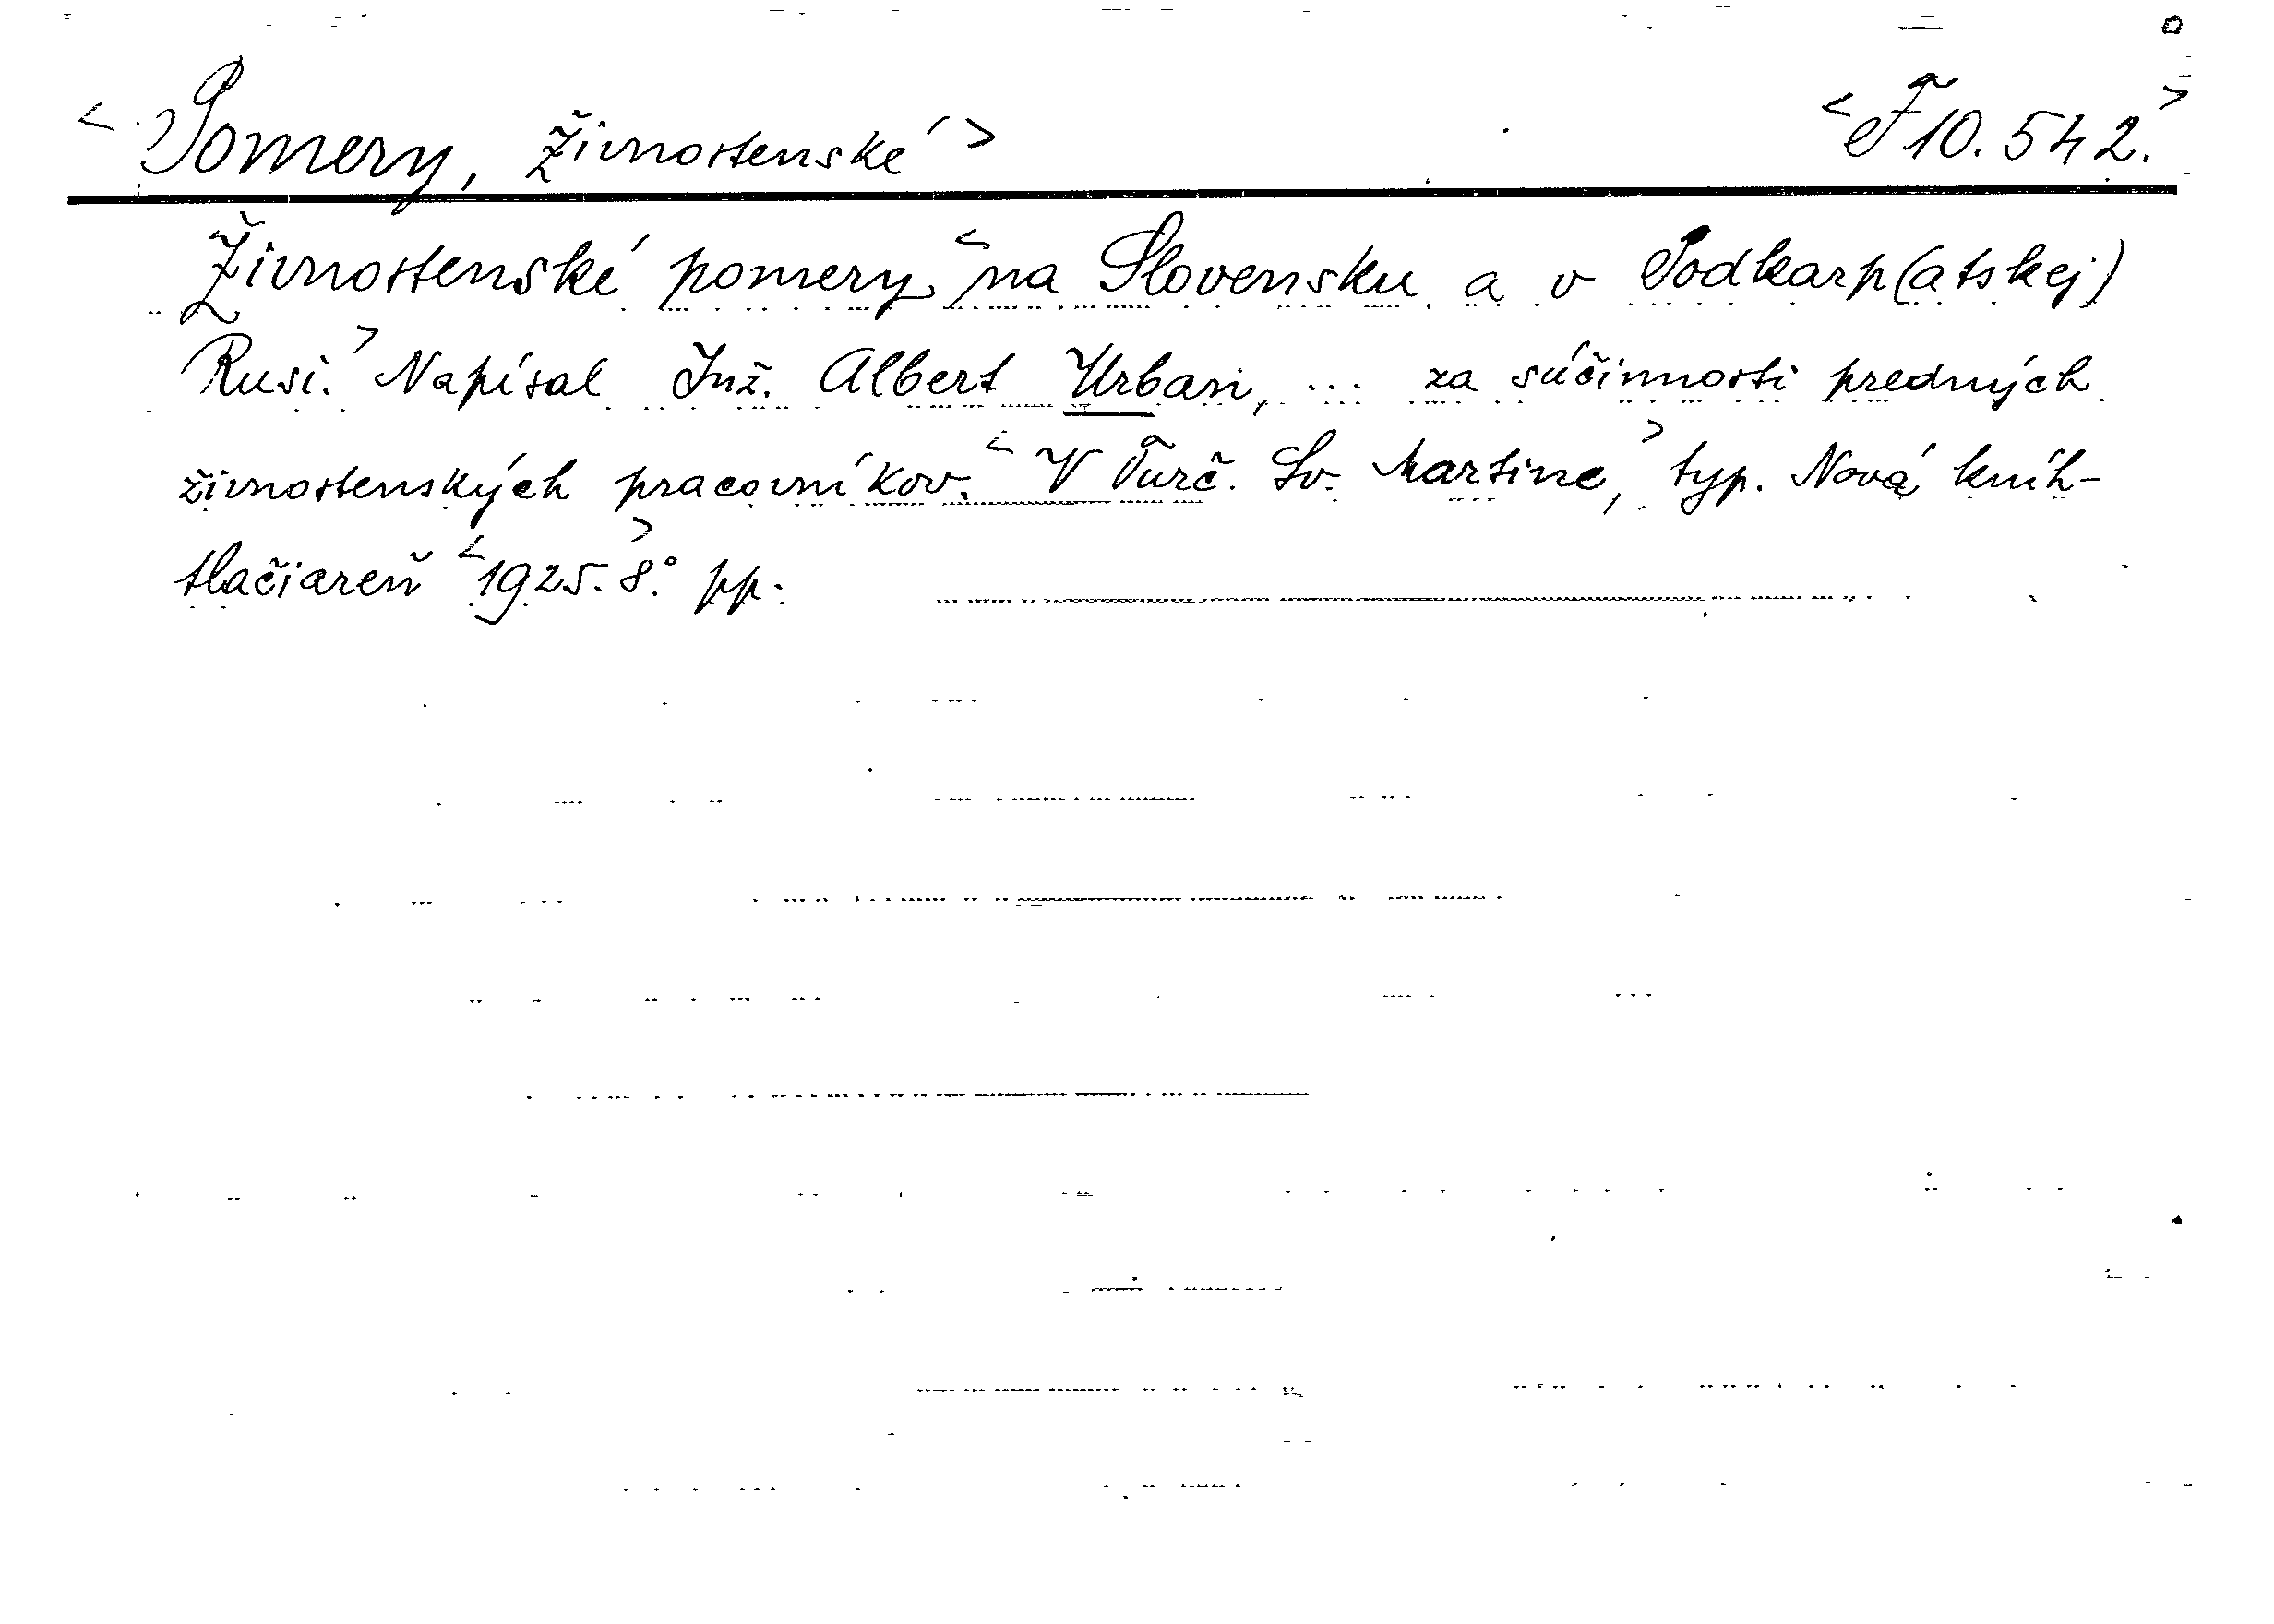 < Pomery, živnostenské > < F 10.542. >
Živnostenské pomery < na Slovensku a v Podkarp(atskej)
Rusi. > Napísal Inž. Albert Urban, ... za súčinnosti predných
živnostenských pracovníkov. < V Turč. Sv. Martine, > typ. Nová kníh-
tlačiareň < 1925. > 8.° pp.